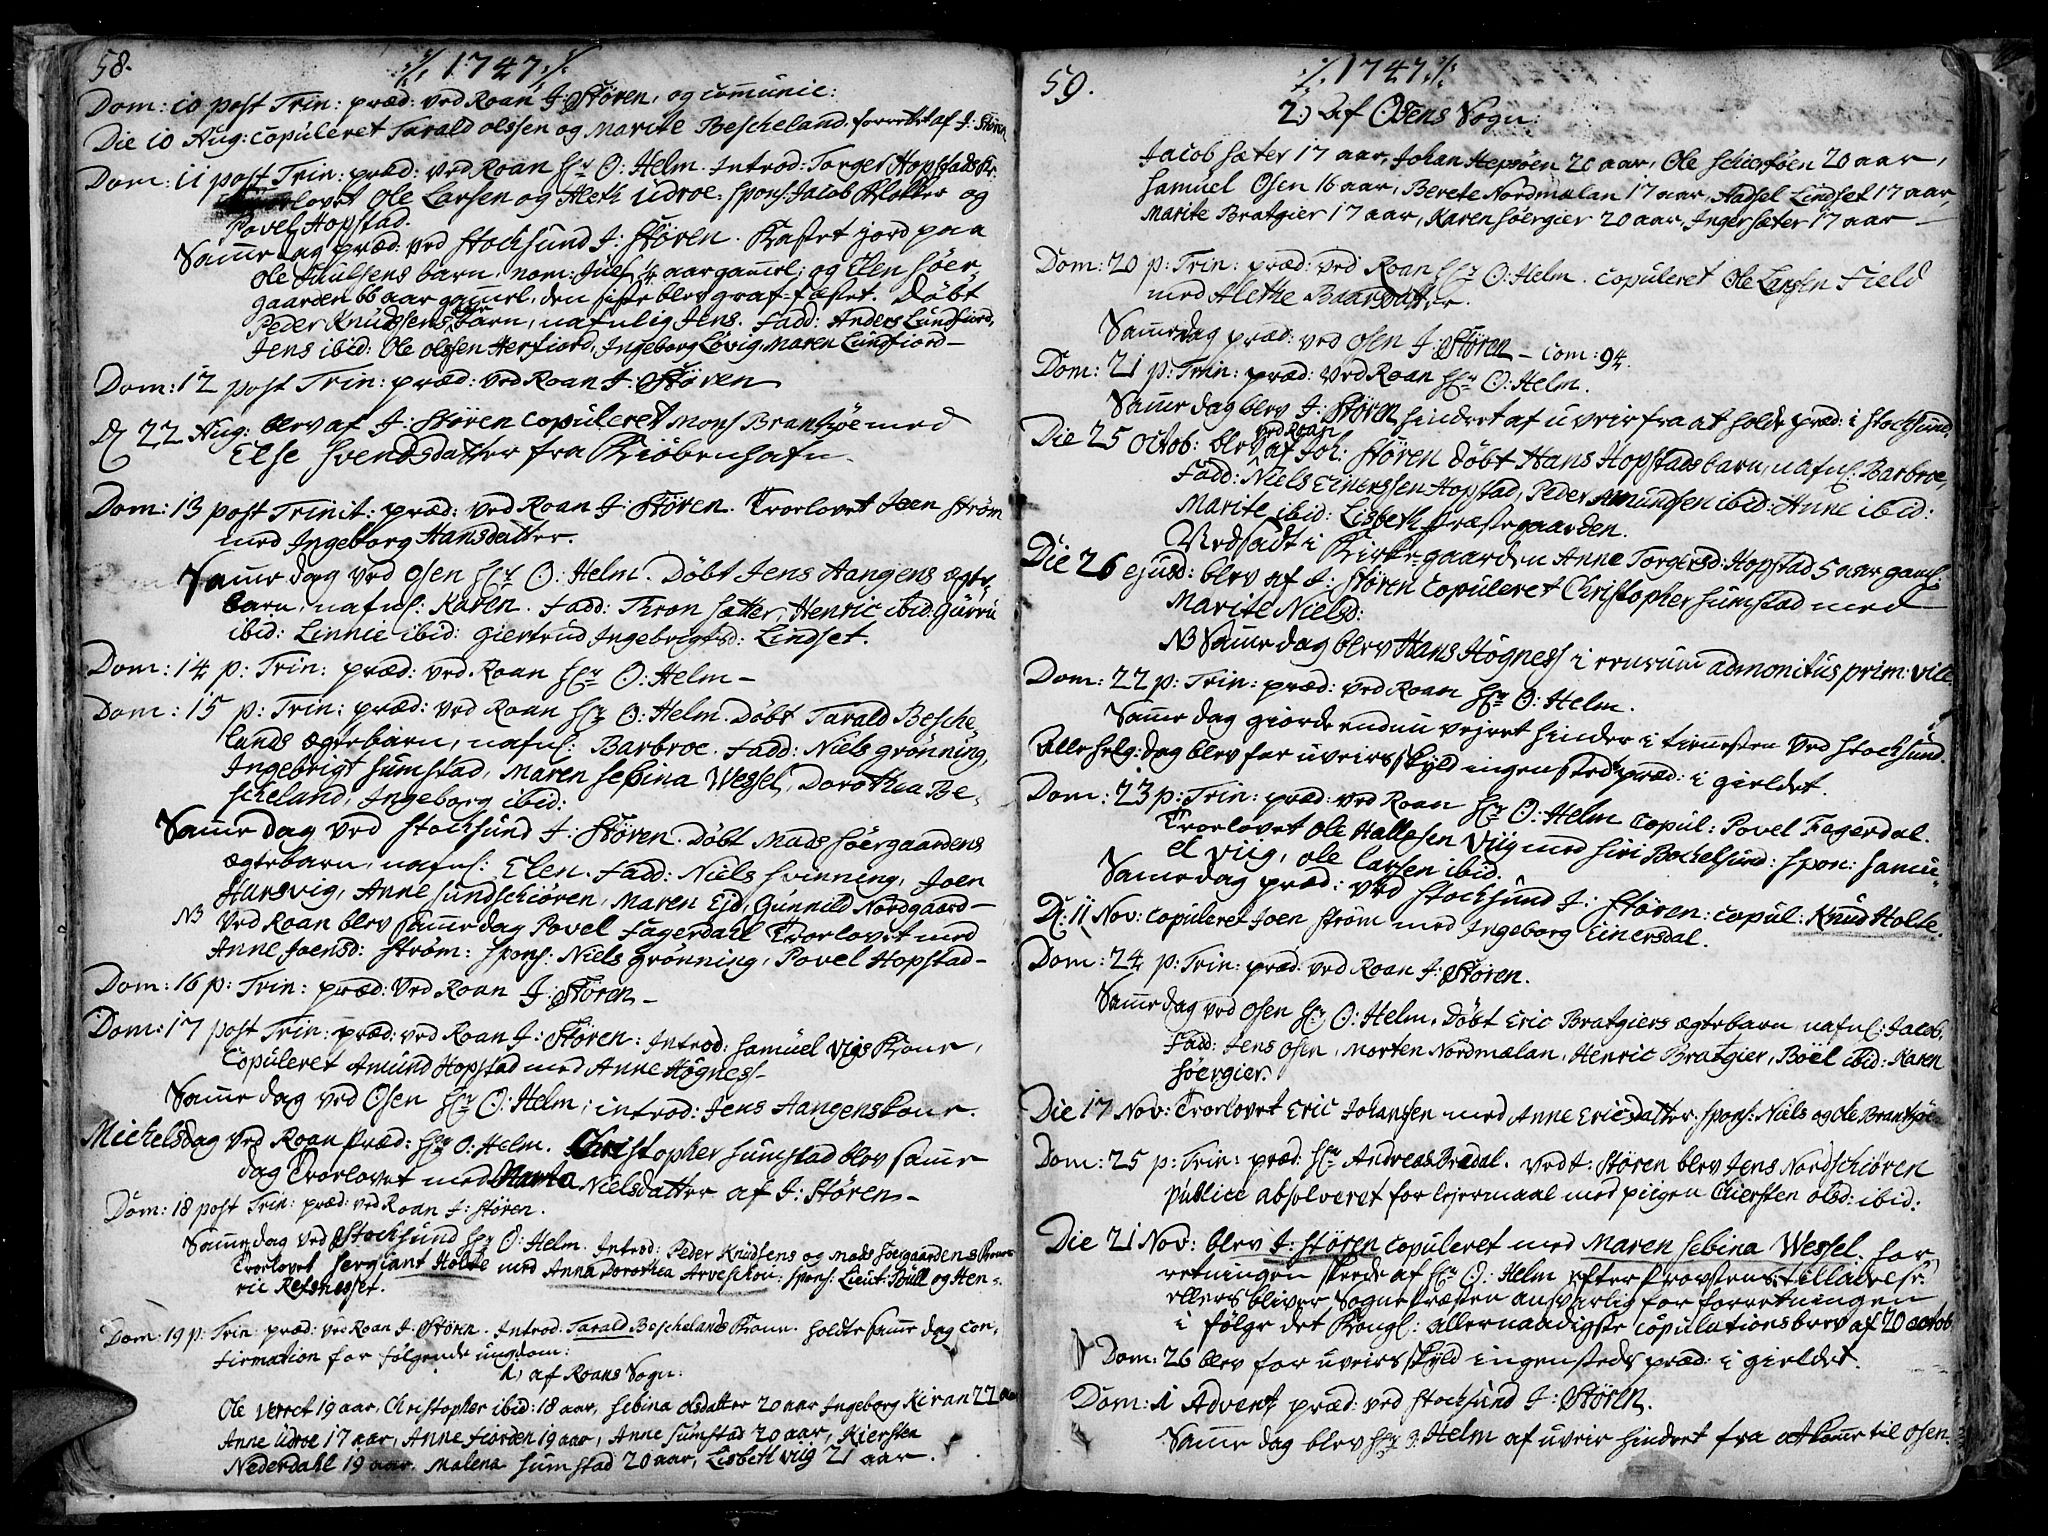 58.
./. 1747 ./.
Dom: 10 post Trin: præd: ved Roan J: Stören, og communic:
Die 10 Aug: copuleret Tarald olssen og Marite Bescheland. forrettet af J: Stören
Dom: 11 post Trin: præd: ved Roan Hr O: Helm. Introd: Torger Hopstads K:
Troerlovet Ole Larsen og Aleth Udroe: spons: Jacob Klotter og
Povel Hopstad.
Samme dag præd: ved Stocksund J: Stören. Kastet jord paa
Ole Juulsens barn, nom: Juel, 1/4 aar gamel; og Elen Söer-
gaarden 66 aar gamel, den siste blev graf-fæstet. Döbt
Peder Knudssens barn, nafnlig Jens. Fadd: Anders Lundfiord,
Jens ibid: Ole olssen Herfiord, Ingeborg Lövig, Maren Lundfiord-
Dom: 12 post Trin: præd: ved Roan J: Stören
D. 22 Aug: blev af J: Stören copuleret Mons Brandsöe med
Else Svendsdatter fra Kiöbenhafn.
Dom: 13 post Trinit: præd: ved Roan J: Stören. Troerlovet Joen Ström
med Ingeborg Hansdatter.
Samme dag ved Osen Hr O: Helm. Döbt Jens Aangens ægte-
barn, nafnl: Karen. Fadd: Thron Sætter, Henric ibid: Gurru
ibid: Linnie ibid: Giertrud Ingebrigtsd: Lindset.
Dom: 14 p: Trin: præd: ved Roan Hr O: Helm-
Dom: 15 p: Trin: præd: ved Roan Hr O: Helm. Döbt Tarald Besche-
lands ægtebarn, nafnl: Barbroe. Fadd: Niels Grönning,
Ingebrigt Sumstad, Maren Sebina Wessel, Dorothea Be-
scheland, Ingeborg ibid:
Samme dag ved Stocksund J: Stören. Döbt Mads Söergaardens
ægtebarn, nafnl: Elen. Fadd: Niels Svinning, Joen
Harsvig, Anne Sundschiören, Maren Ejd, Gunnild Nordgaard-
NB Ved Roan blev samme dag Povel Fagerdahl Troerlovet med
Anne Joensd: Ström: spons: Niels Grönning, Povel Hopstad-
Dom: 16 p: Trin: præd: ved Roan J: Stören-
Dom: 17 post Trin: præd: ved Roan J: Stören: Introd: Samuel Vigs Kone,
Copuleret Amund Hopstad med Anne Högness-
Samme dag ved Osen Hr O: Helm; introd: Jens Aangens kone.
Michelsdag ved Roan præd: Hr O: Helm. Christopher Sumstad blev samme
dag Troerlovet med Marta Nielsdatter af J: Stören-
Dom: 18 post Trin: præd: ved Roan J: Stören.
Samme dag ved Stocksund Hr O: Helm. Introd: Peder Knudsens og Mads Söergaardens Koner
Troerlovet Sergiant Holte med Anna Dorothea Arveschou: spons: Lieut: Bull og Hen-
ric Refsnesset.
Dom: 19 p: Trin: præd: ved Roan J: Stören. Introd. Tarald Beschelands Kone. holdte samme dag con-
firmation for fölgende ungdom:
1, af Roans Sogn:
Ole Verret 19 aar, Christopher ibid: 18 aar, Sebina olsdatter 20 aar Ingeborg Kiran 22 aar
Anne Udroe 17 aar, Anne Fiorden 19 aar, Anne Sumstad 20 aar, Kiersten
Nederdahl 19 aar. Malena Sumstad 20 aar, Lisbeth Viig 21 aar.
59.
./. 1747 ./.
2) Af Osens Sogn:
Jacob Sæter 17 aar, Johan Hepsöen 20 aar, Ole Schiersöen 20 aar,
Samuel Osen 16 aar, Berete Nordmælan 17 aar, Aadsel Lindset 17 aar,
Marite Bratgier 17 aar, Karen Söergier 20 aar, Inger Sæter 17 aar -
Dom: 20 p: Trin: præd: ved Roan Hr O: Helm. copuleret Ole Larsen Field
med Alethe Baarsdatter.
Samme dag præd: ved Osen J: Stören - com: 94.
Dom: 21 p: Trin: præd: ved Roan Hr O: Helm.
Samme dag blev J: Stören hindret af uveir fra at holde præd: i Stocksund.
Die 25 Octob: blev ved Roan af Joh: Stören döbt Hans Hopstads barn, nafnl: Barbroe,
Fadd: Niels Einerssen Hopstad, Peder Amundsen ibid: Anne ibid:
Marite ibid: Lisbeth Præstegaarden.
Nedsadt i Kirke-gaarden Anne Torgersd: Hopstad 5 aar gaml:
Die 26 ejusd: blev af J: Stören copuleret Christopher Sumstad med
Marite Nielsd:
NB Samme dag blev Hans Högness i censum admonitus prim: vice.
Dom: 22 p: Trin: præd: ved Roan Hr O: Helm.
Samme dag giorde endnu vejret hinder i tienesten ved Stocksund.
Alle helg: dag blev for uveirs skyld ingensteds præd: i gieldet.
Dom: 23 p: Trin: præd: ved Roan Hr O: Helm copul: Povel Fagerdal.
Troerlovet Ole Hallesen Viig med Siri Bockelsund: spon: Samu-
el Viig, Ole Larsen ibid.
Samme dag præd: ved Stocksund J: Stören: copul: Knud Holte.
D: 11 Nov: copuleret Joen Ström med Ingeborg Einersdal.
Dom: 24 p: Trin: præd: ved Roan J: Stören.
Samme dag ved Osen Hr O: Helm. Döbt Eric Bratgiers ægtebarn nafnl: Jacob.
Fadd: Jens Osen, Morten Nordmælan, Henric Bratgier, Böel ibid: Karen
Söergier.
Die 17 Nov: Troerlovet Eric Johansen med Anne Ericsdatter. spons: Niels og Ole Brandsöe
Dom: 25 p: Trin: præd: Hr Andreas Bredal. ved J: Stören blev Jens Nordschiören
publice absolveret for lejermaal med piigen Chiersten olsd: ibid:
Die 21 Nov: blev J: Stören copuleret med Maren Sebina Wessel. For-
retningen skeede af Hr O: Helm efter Provstens tilladelse.
ellers bliver Sognepræsten ansvarlig for forretningen
i fölge det Kongl: allernaadigste copulationsbrev af 20 octob
Dom: 26 blev for uveirs skyld ingensteds præd: i gieldet.
Dom: 1 Advent præd: ved Stocksund J: Stören.
Samme dag blev Hr O: Helm af uveir hindret fra at komme til Osen.